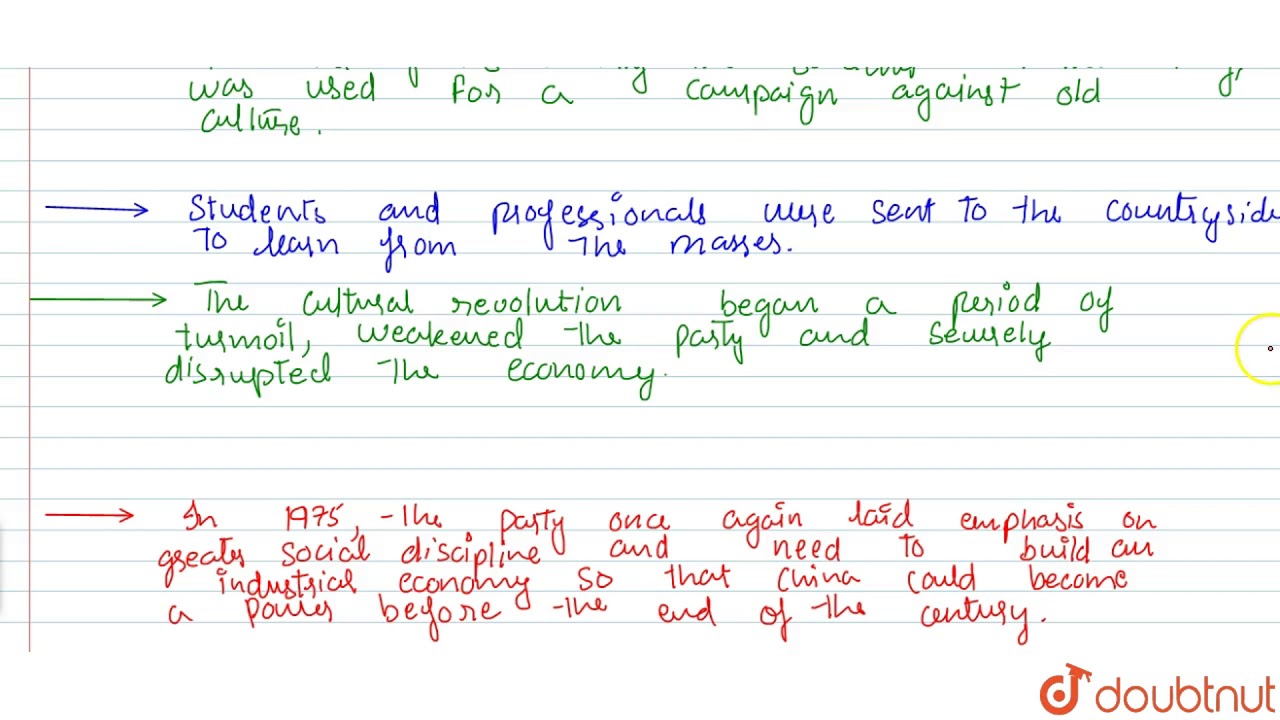 was used for a campaign against old
culture.
→ Students and professionals were sent to the countryside
To learn from the masses.
→ The cultural revolution began a period of
turmoil, weakened the party and severely
disrupted the economy.
→ In 1975, the party once again laid emphasis on
greater social discipline and need to build an
industrial economy so that China could become
a power before the end of the century.
doubtnut